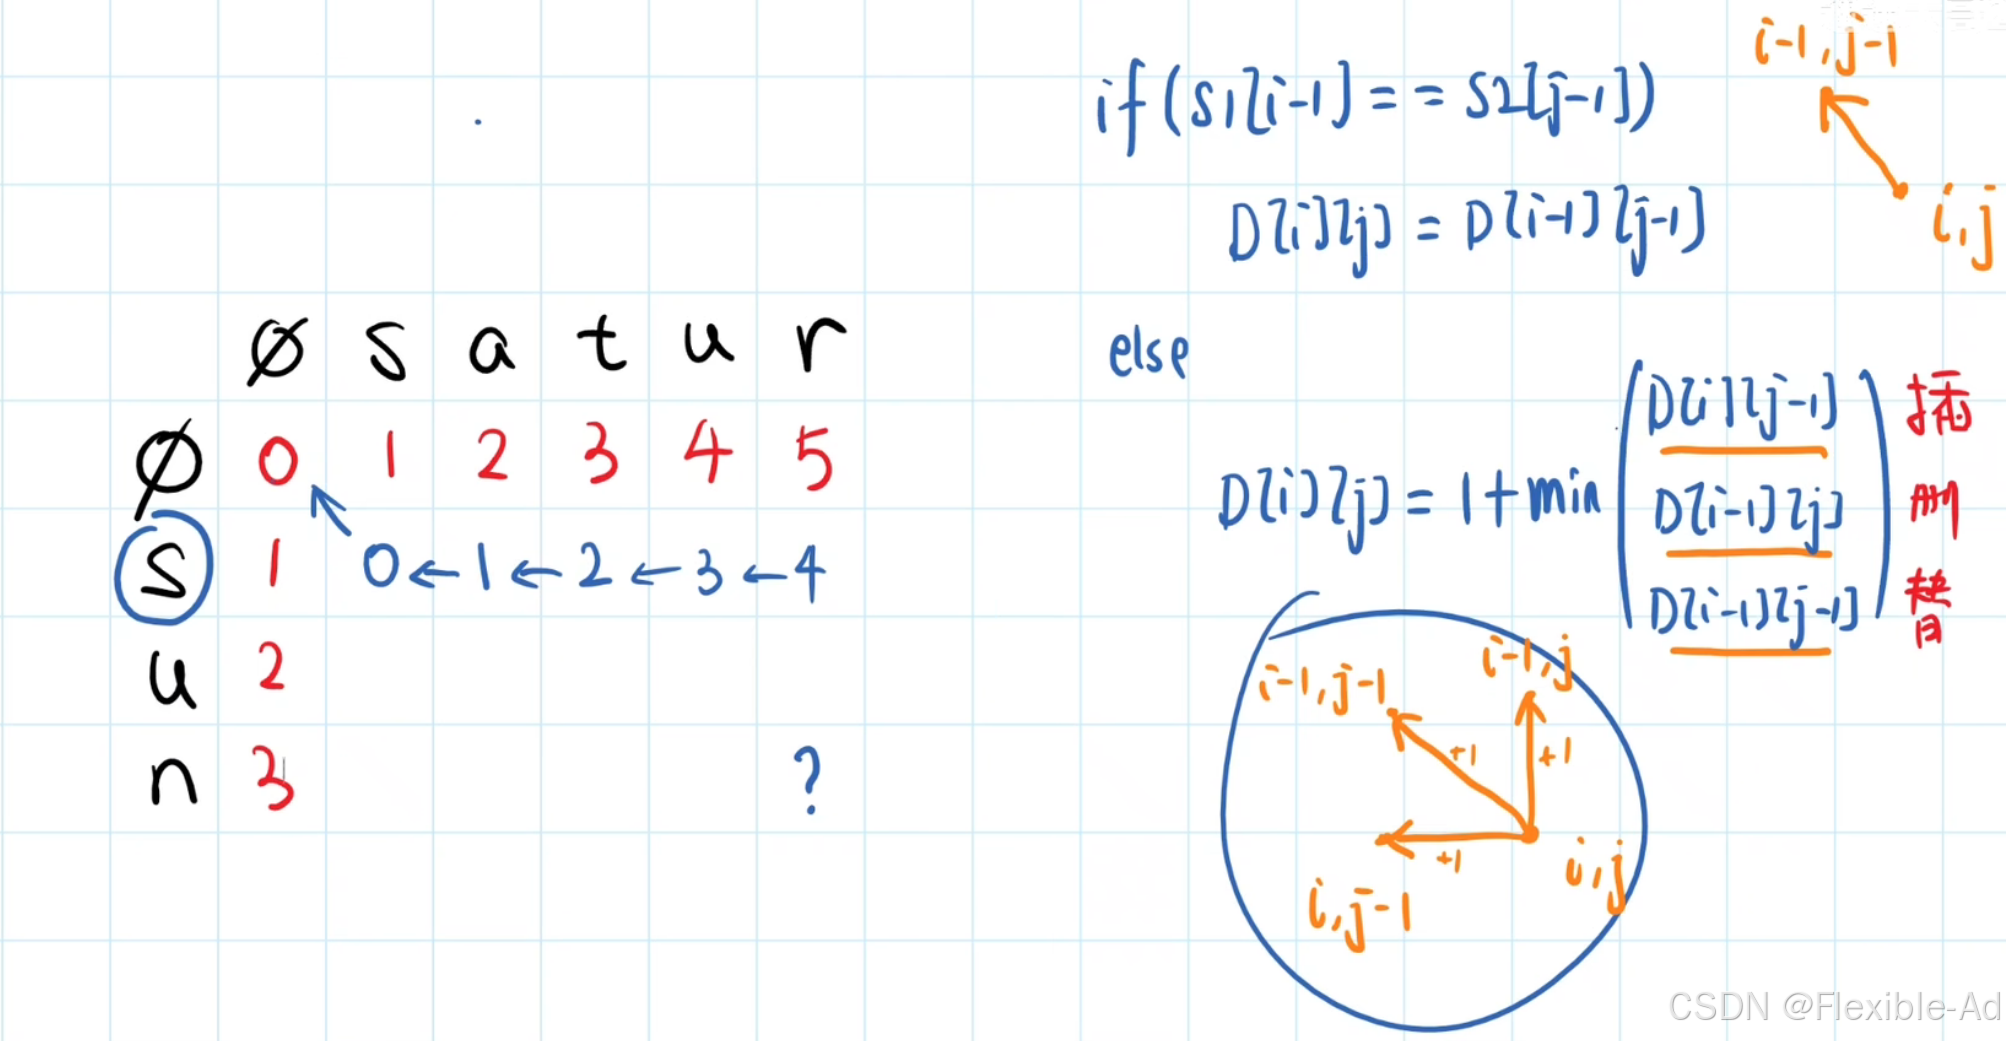 if (S1[i-1] == S2[j-1])
D[i][j] = D[i-1][j-1]
i-1,j-1
i,j
else
D[i][j] = 1+min
D[i][j-1] 插
D[i-1][j] 删
D[i-1][j-1] 替
∅ s a t u r
∅ 0 1 2 3 4 5
s 1 0←1←2←3←4
u 2
n 3 ?
i-1,j-1
i-1,j
+1
+1
+1
i,j-1
i,j
CSDN @Flexible-Ad